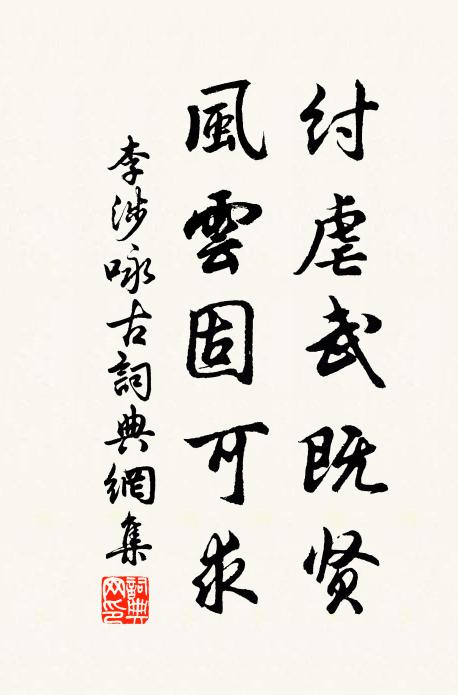 紂虐武既贤
風雲固可求
李涉咏古詞典網集
詞典網印